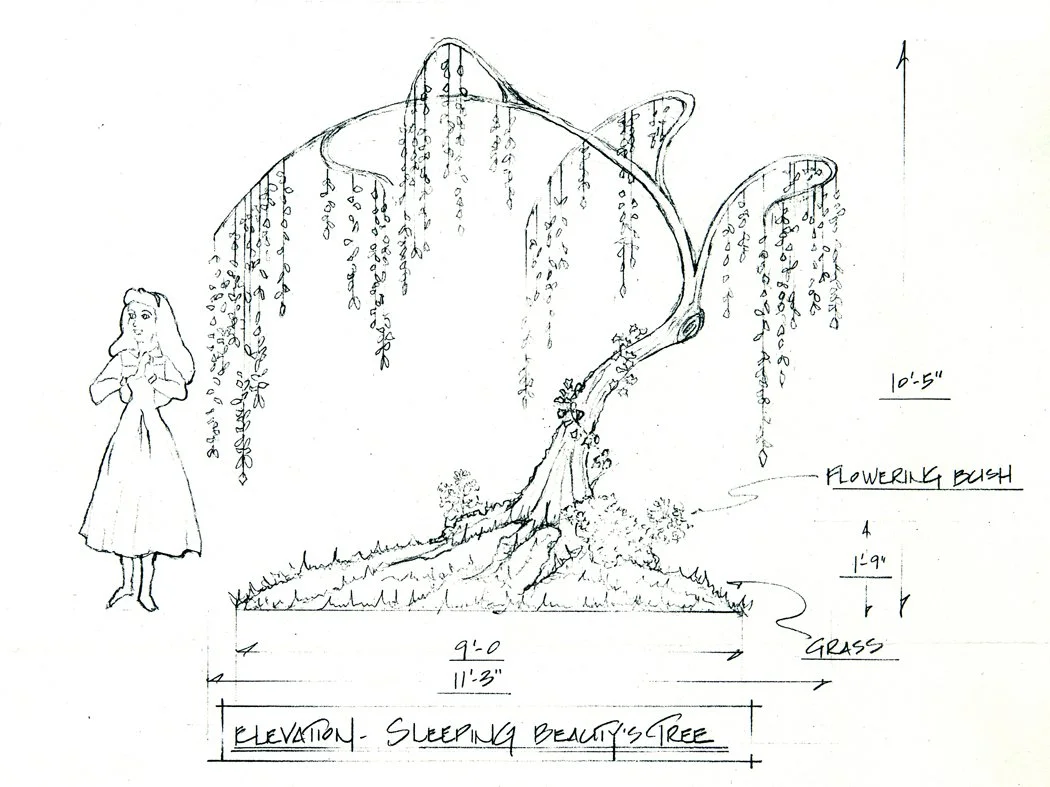 10'-5"
FLOWERING BUSH
1'-9"
GRASS
9'-0
11'-3"
ELEVATION - SLEEPING BEAUTY'S TREE